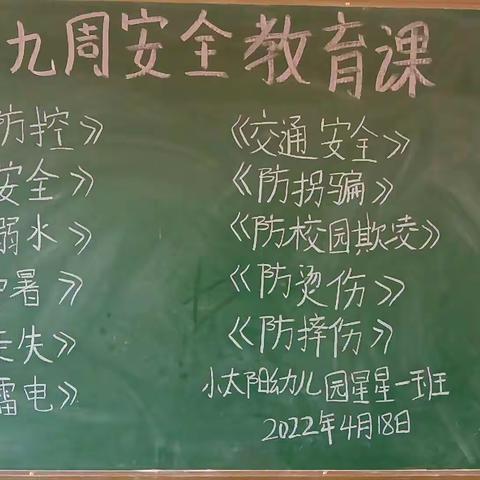 九周安全教育课
防控》
安全》
溺水》
中暑》
走失》
雷电》
《交通安全》
《防拐骗》
《防校园欺凌》
《防烫伤》
《防摔伤》
小太阳幼儿园星星一班
2022年4月18日